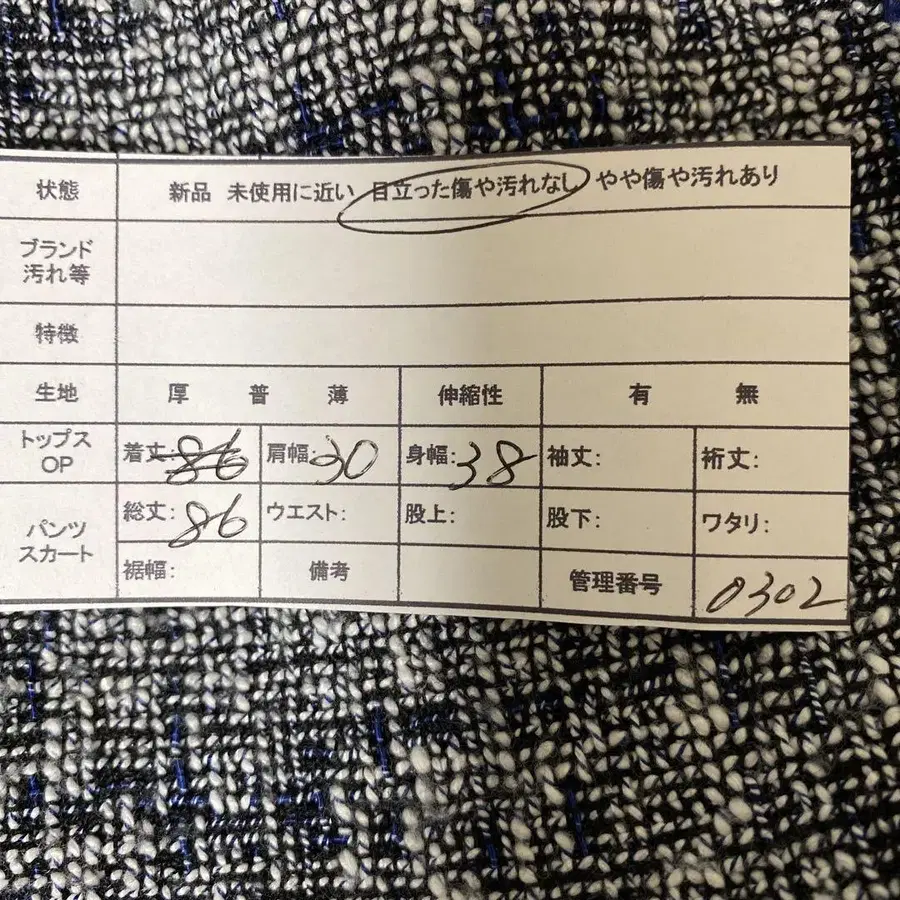 状態 新品 未使用に近い 目立った傷や汚れなし やや傷や汚れあり
ブランド
汚れ等
特徴
生地 厚 普 薄 伸縮性 有 無
トップス
OP
着丈: 86 肩幅: 30 身幅: 38 袖丈: 裄丈:
パンツ
スカート
総丈: 86 ウエスト: 股上: 股下: ワタリ:
裾幅: 備考 管理番号 0302